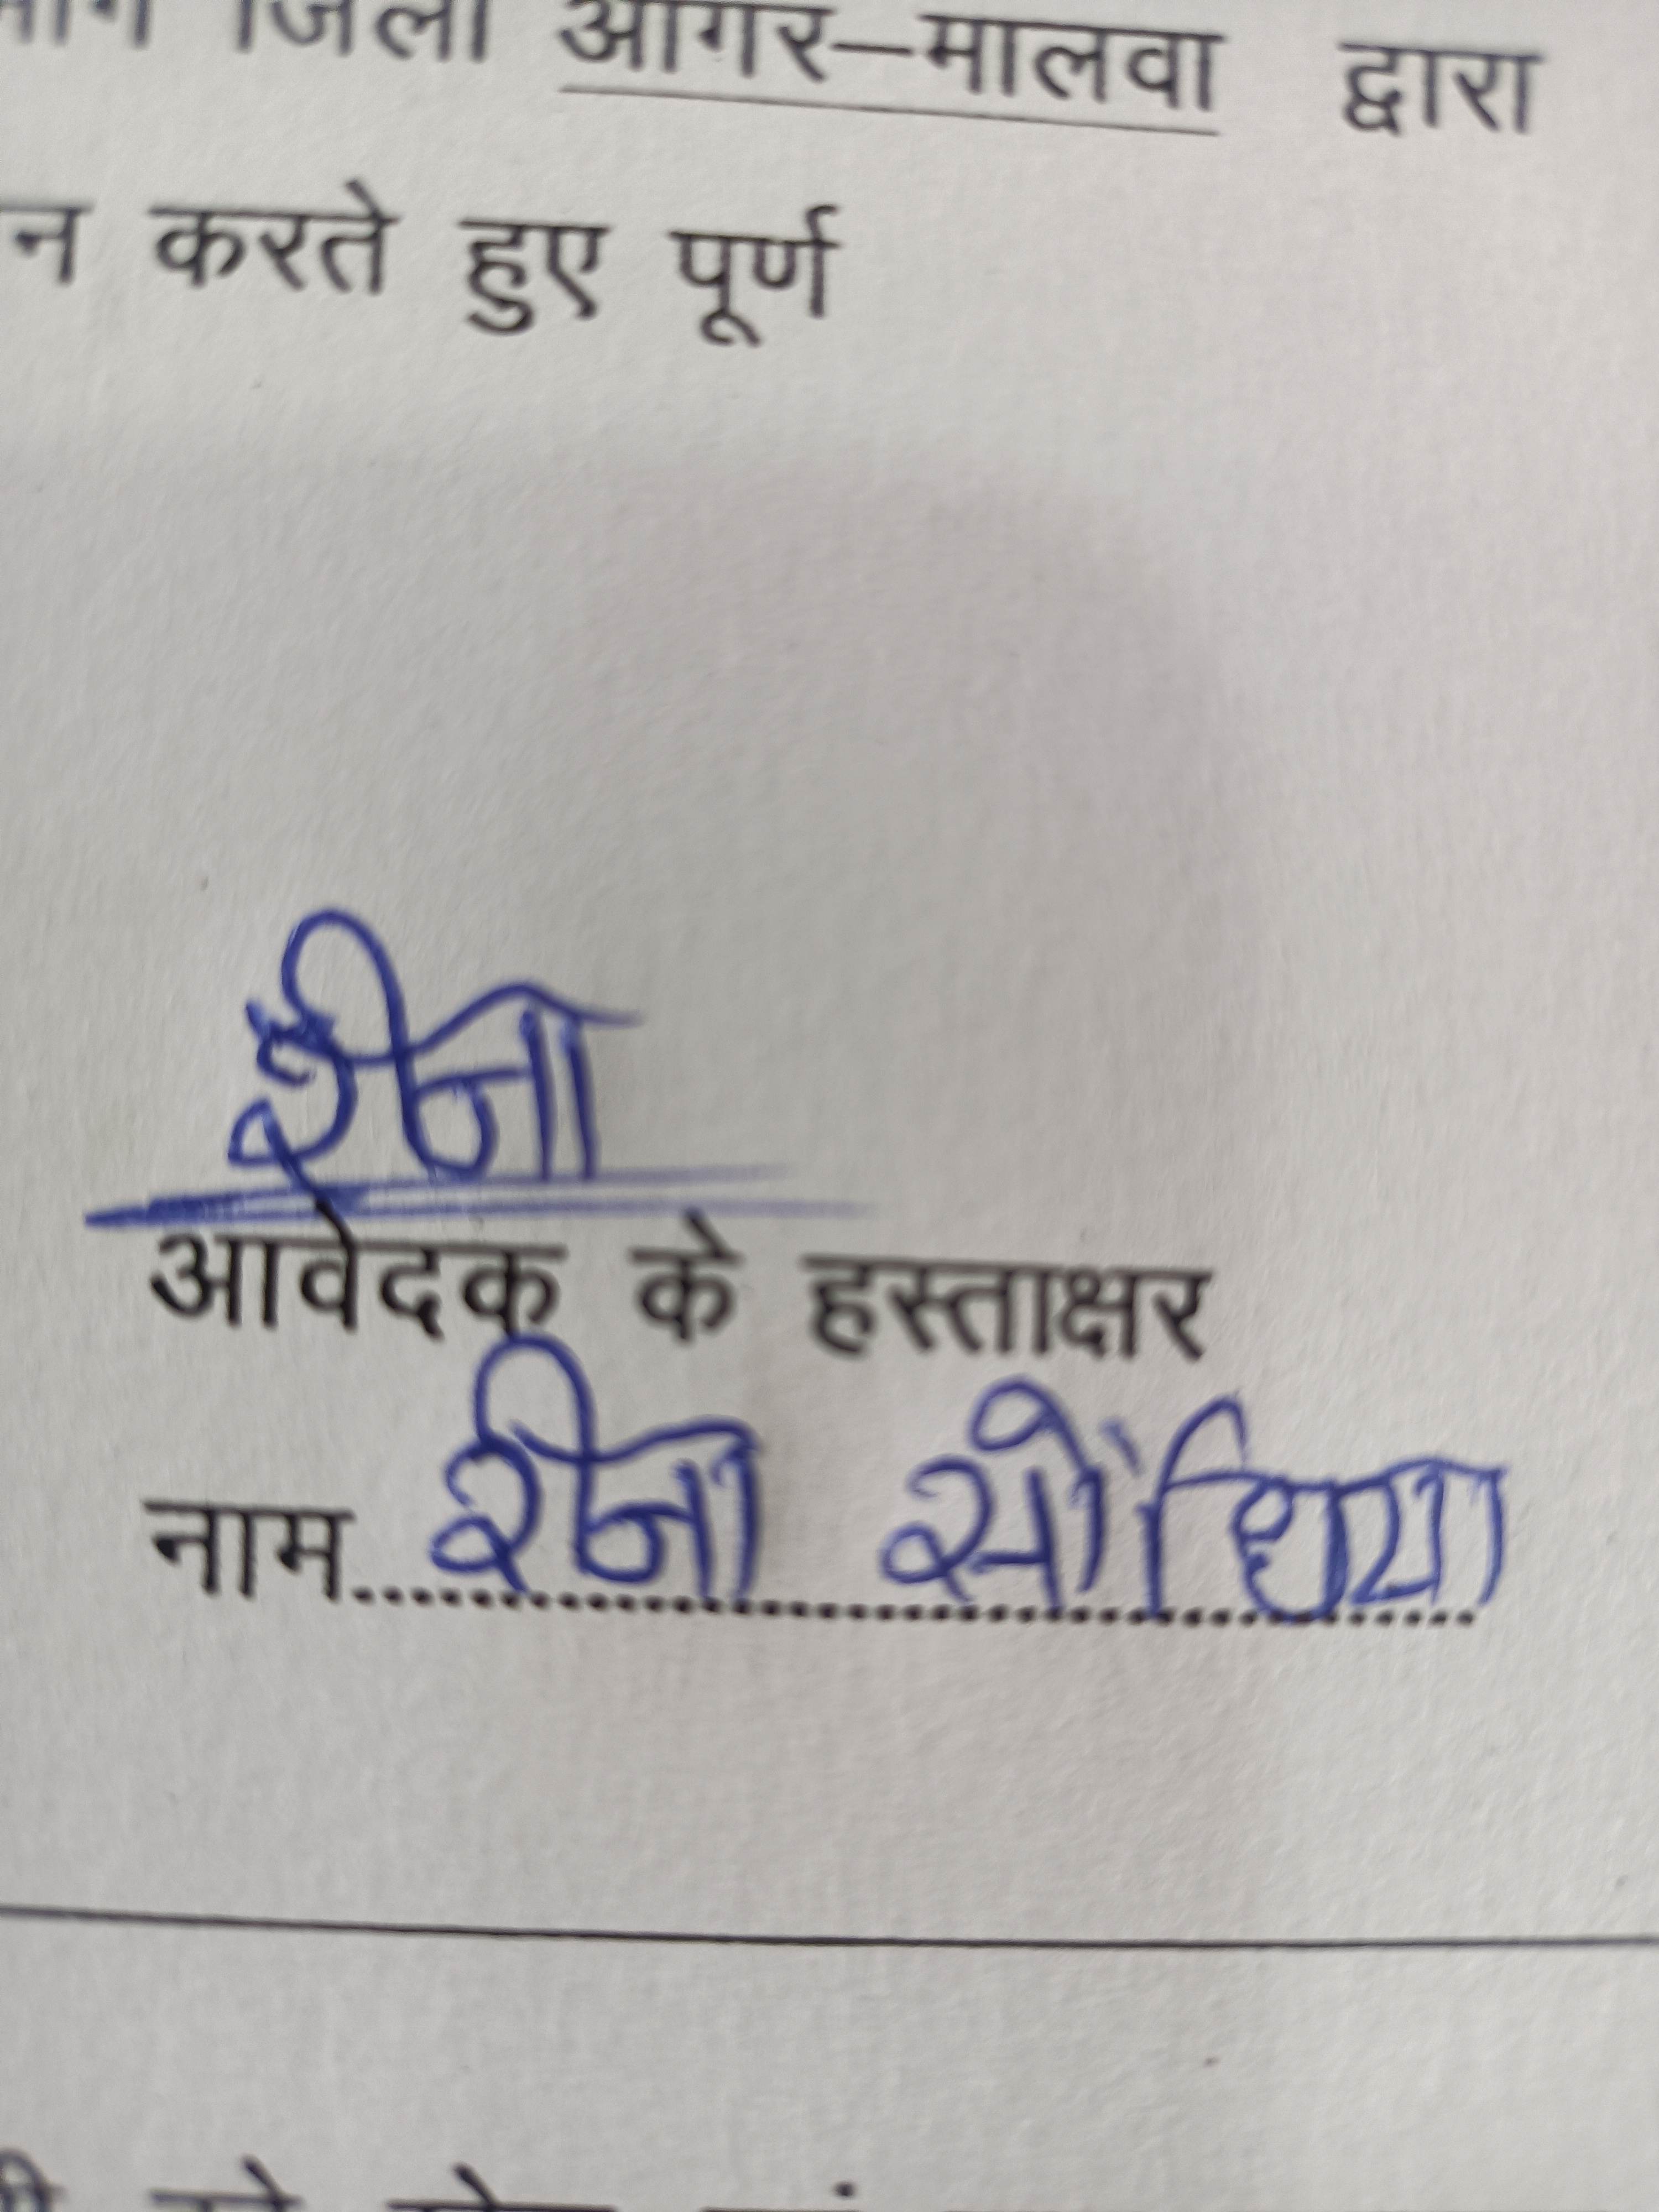 जिला आगर–मालवा द्वारा
न करते हुए पूर्ण
रीना
आवेदक के हस्ताक्षर
नाम.......रीना सोंधिया.......